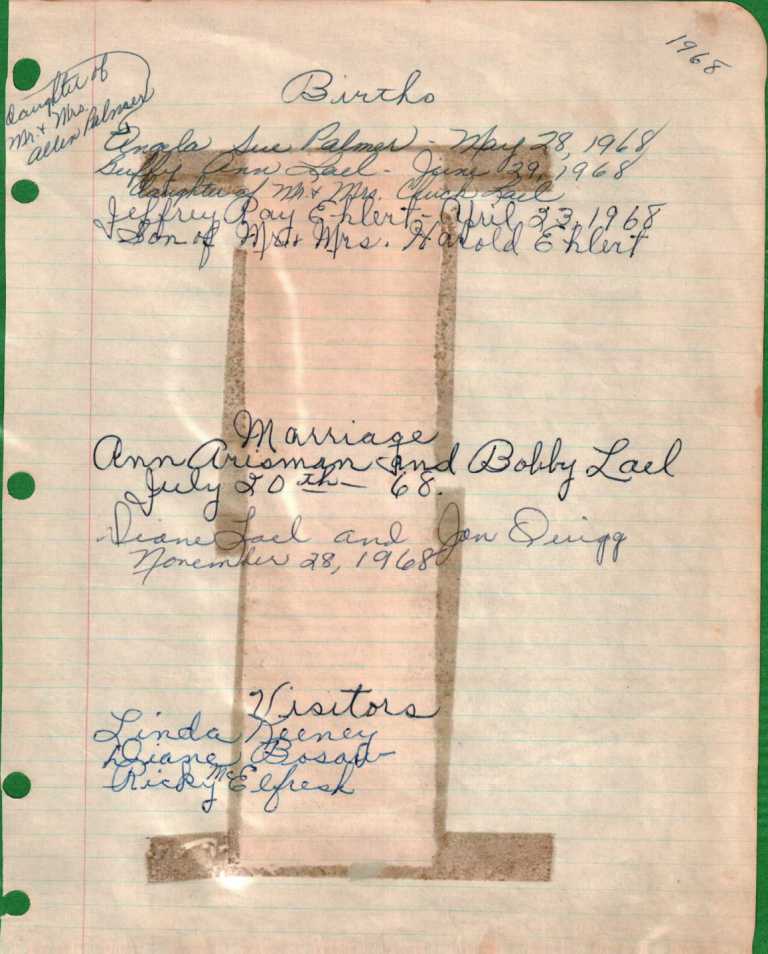 1968
Births
daughter of
Mr. & Mrs.
Allen Palmer
Angela Sue Palmer - May 28, 1968
Ann Lael - June 29, 1968
daughter of Mr. & Mrs. Chuck Lael
Jeffrey Ray Ehlert - April 23, 1968
Son of Mr. & Mrs. Harold Ehlert
Marriage
Ann Arisman and Bobby Lael
July 20th - 68.
Diane Lael and Jon Quigg
November 28, 1968
Visitors
Linda Keeney
Diane Bosaw
Ricky McElfresh